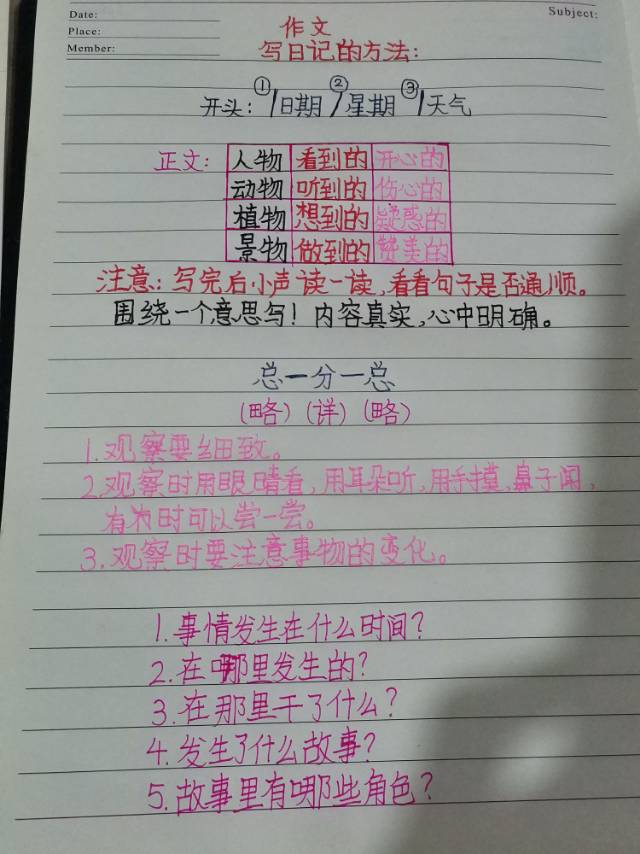 Date:
Subject:
Place:
Member:
作文
写日记的方法:
开头: ①日期 ②星期 ③天气
正文: 人物 看到的 开心的
动物 听到的 伤心的
植物 想到的 疑惑的
景物 做到的 赞美的
注意: 写完后小声读一读,看看句子是否通顺。
围绕一个意思写! 内容真实,心中明确。
总一分一总
(略) (详) (略)
1.观察要细致。
2.观察时用眼睛看,用耳朵听,用手摸,鼻子闻,
有的时可以尝一尝。
3.观察时要注意事物的变化。
1.事情发生在什么时间?
2.在哪里发生的?
3.在那里干了什么?
4.发生了什么故事?
5.故事里有哪些角色?